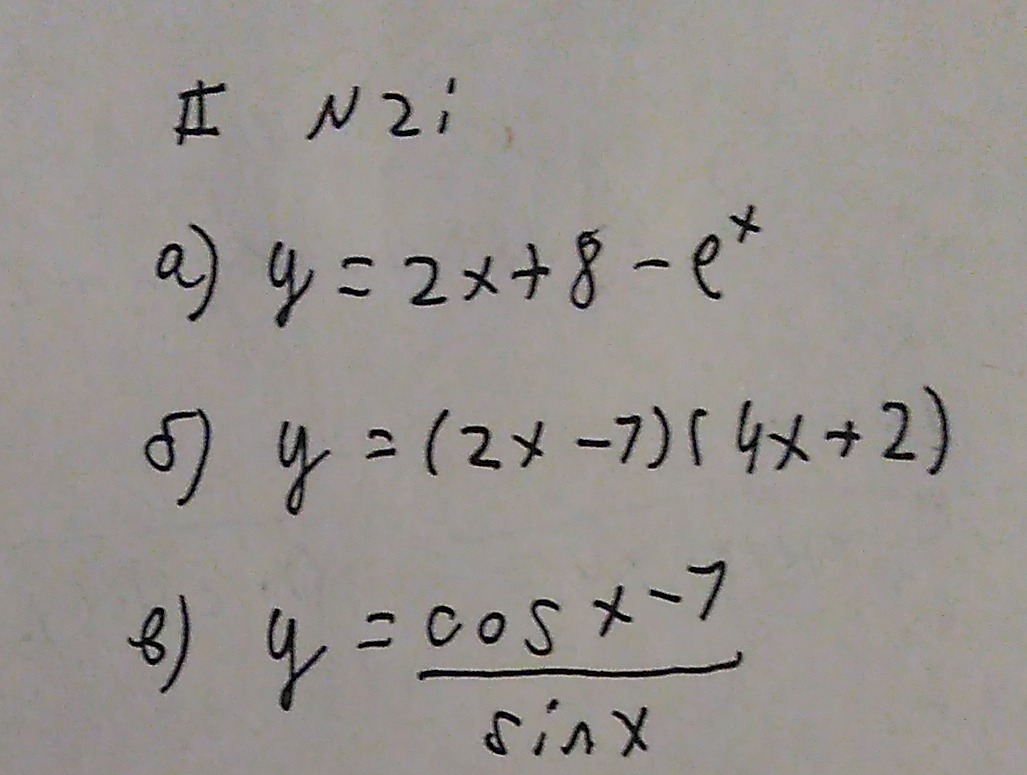 II N2i
а) y = 2x + 8 - eˣ
б) y = (2x - 7)(4x + 2)
в) y = cos x - 7
sin x